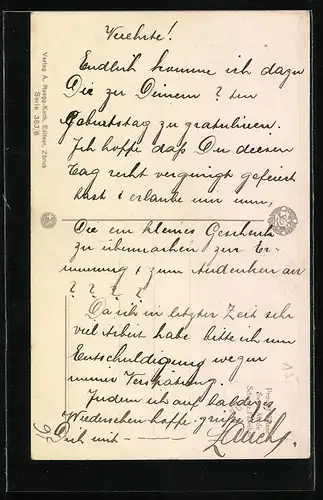 Verehrte!
Endlich komme ich dazu
Dir zu Deinem ? ten
Geburtstag zu gratulieren.
Ich hoffe daß Du diesen
Tag recht vergnügt gefeiert
hast & erlaube mir nun,
Dir ein kleines Geschenk
zu übermachen zur Er-
innerung & zum Andenken an
? ? ? ?
Da ich in letzter Zeit sehr
viel Arbeit habe bitte ich um
Entschuldigung wegen
meiner Verspätung.
Indem ich auf baldiges
Wiedersehen hoffe grüße ich
Dich mit - - - -
Verlag A. Ruegg-Koch, Editeur, Zürich
Serie 383/6